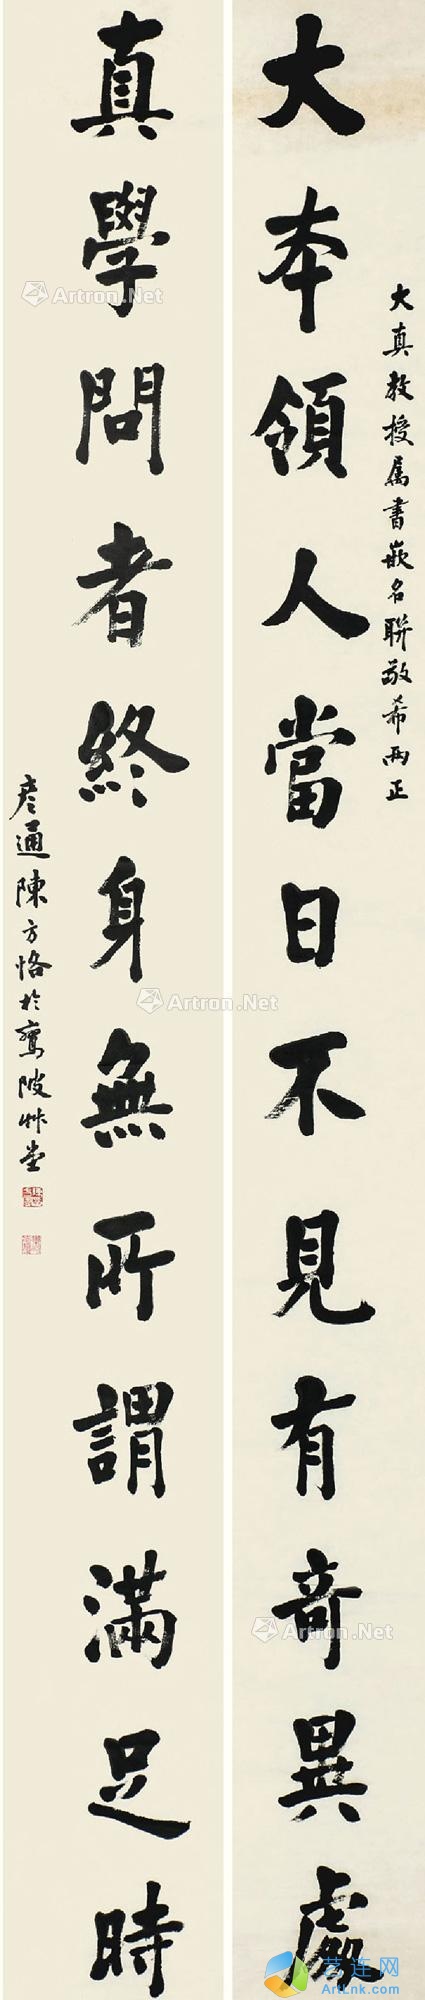 大真教授属書嵌名聯敬希两正
大本領人當日不見有奇異處
真學問者終身無所謂滿足時
彦通陳方恪於鸞陂艸堂
Artron.Net
Artron.Net
Artron.Net
Artron.Net
艺连网
ArtLnk.com